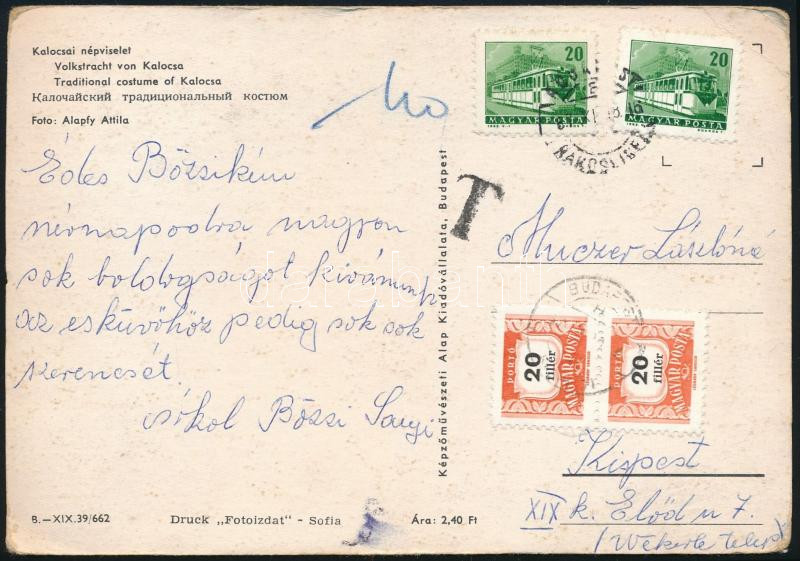 Kalocsai népviselet
Volkstracht von Kalocsa
Traditional costume of Kalocsa
Калочайский традиционный костюм
Foto: Alapfy Attila
20
MAGYAR POSTA
20
MAGYAR POSTA
RÁKOSLIGET
T
Édes Bözsikém
névnapodra nagyon
sok boldogságot kívánunk
az esküvőhöz pedig sok sok
szerencsét.
Bözsi
Képzőművészeti Alap Kiadóvállalata, Budapest
Muczer Lászlóné
BUDAPEST
PORTÓ
20
fillér
MAGYAR POSTA
PORTÓ
20
fillér
MAGYAR POSTA
Kispest
XIX k. Előd u 7.
(Wekerle telep)
B.—XIX.39/662
Druck „Fotoizdat" - Sofia
Ára: 2,40 Ft